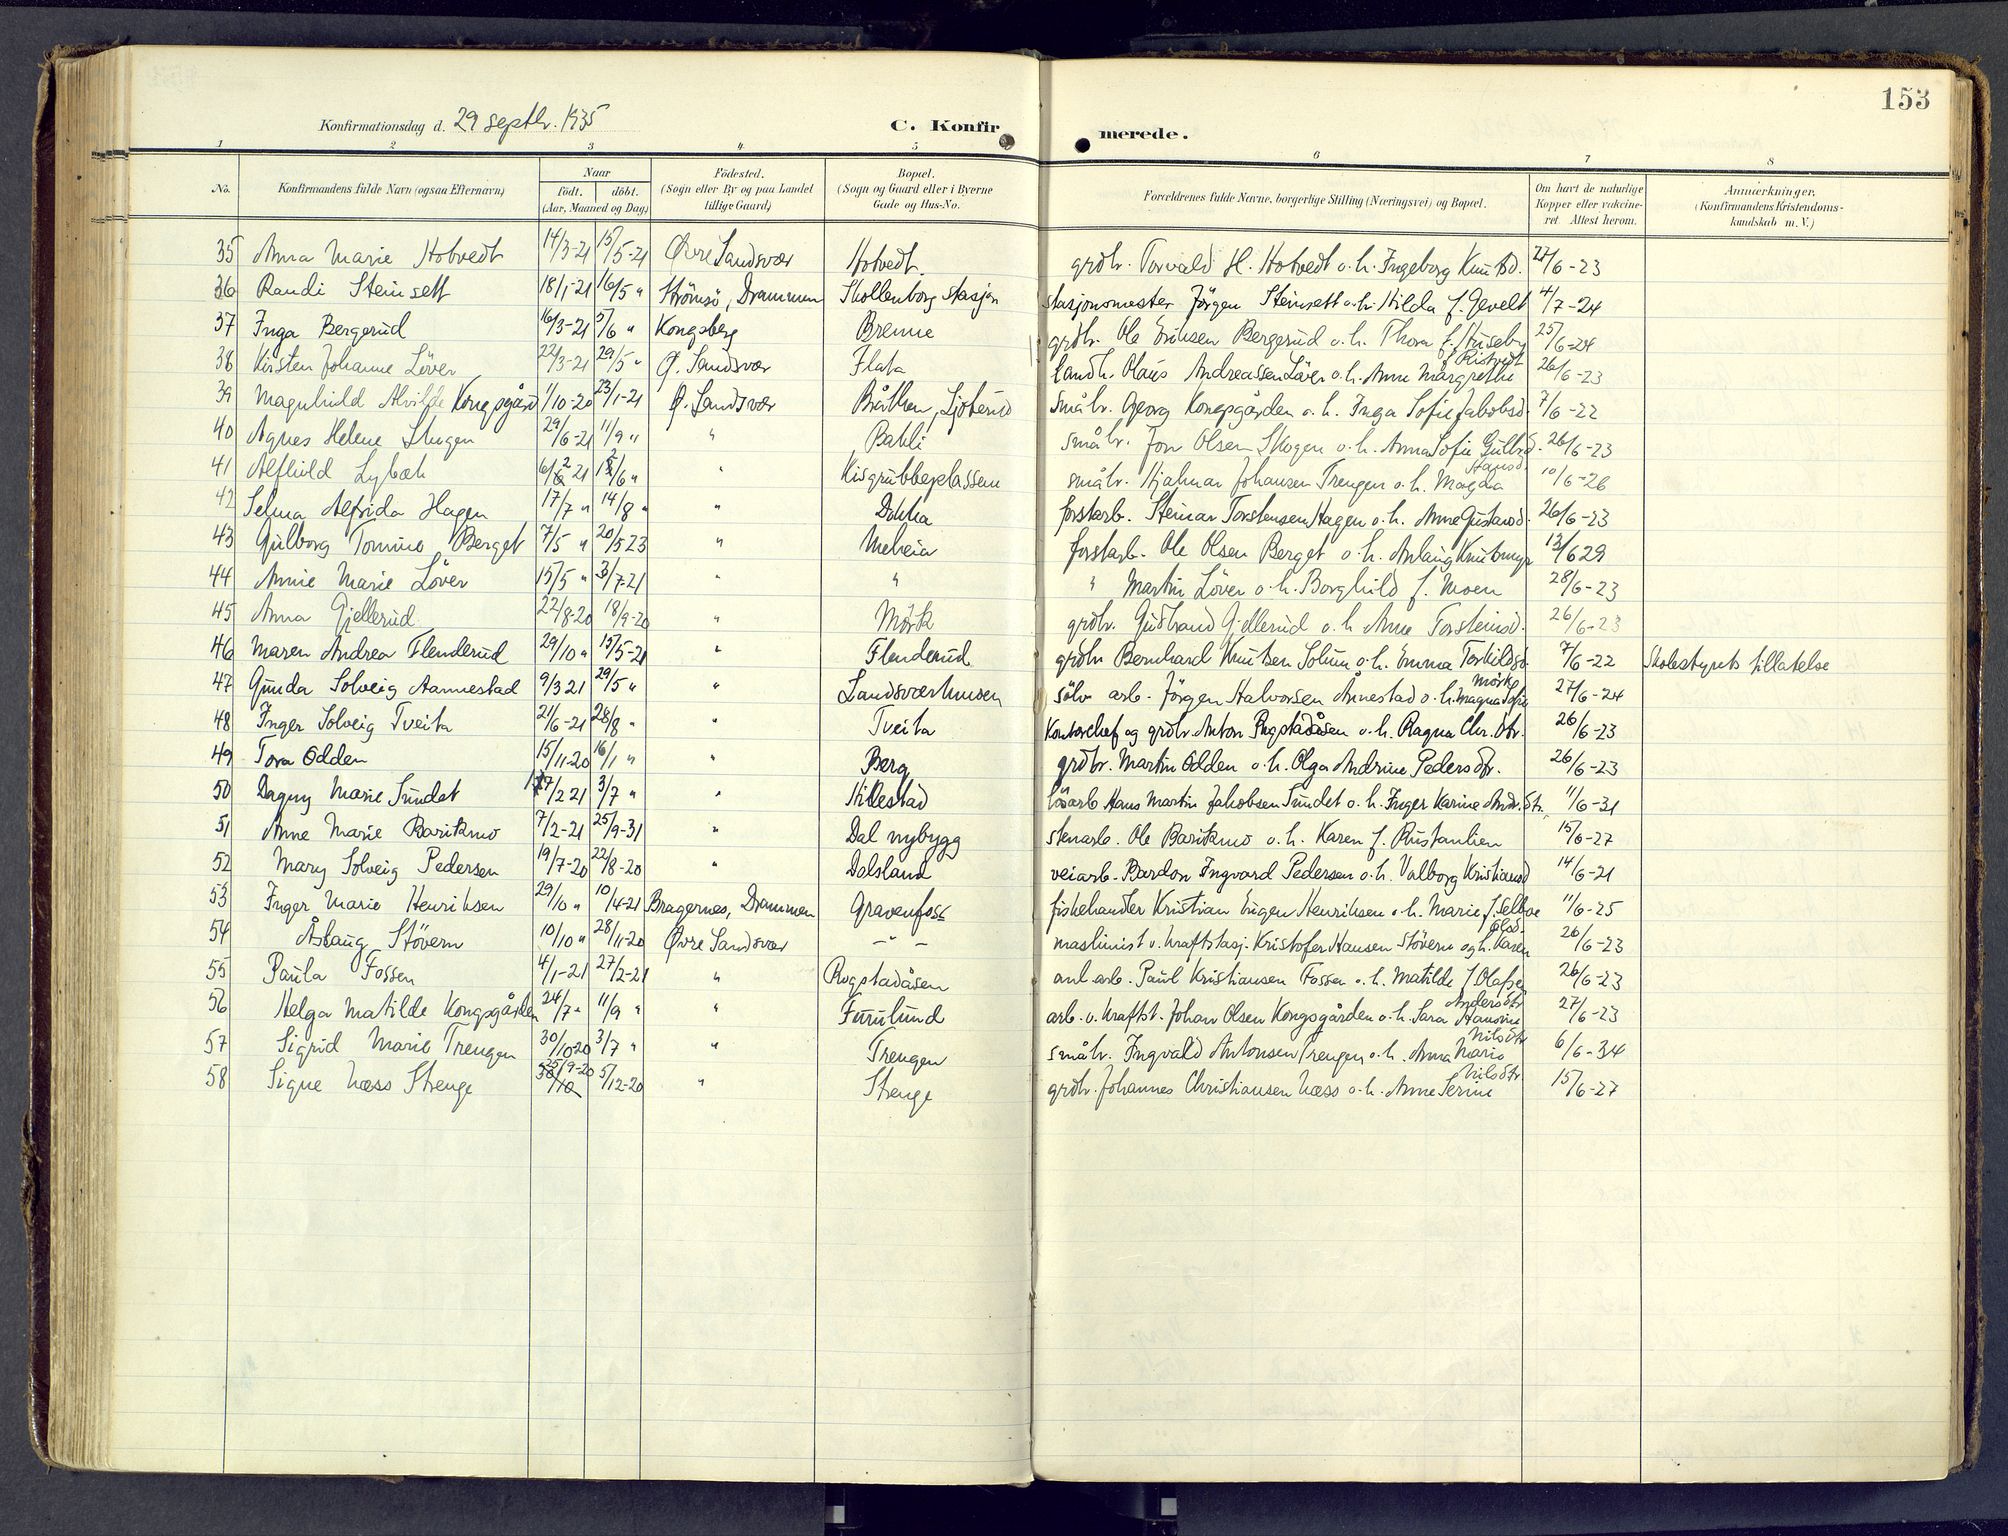 153
Konfirmationsdag d. 29 septbr. 1935 C. Konfir merede.
1 2 3 4 5 6 7 8
No. Konfirmandens fulde Navn (ogsaa Efternavn) Naar født. døbt. (Aar, Maaned og Dag) Fødested. (Sogn eller By og paa Landet tillige Gaard) Bopæl. (Sogn og Gaard eller i Byerne Gade og Hus-No. Forældrenes fulde Navne, borgerlige Stilling (Næringsvei) og Bopæl. Om havt de naturlige Kopper eller vakcineret. Attest herom. Anmærkninger. (Konfirmandens Kristendomskundskab m. V.)
35 Anna Marie Hotvedt 14/3-21 15/5-21 Øvre Sandsvær Hotvedt. grdbr. Torvald H. Hotvedt o.h. Ingeborg Knutsd. /6-23
36 Randi Steinsett 18/1-21 16/5 " Strömsö, Drammen Skollenborg stasjon stasjonsmester Jörgen Steinsett o.h. Hilda f. Gevelt 4/7-24
37 Inga Bergerud 16/3-21 5/6 " Kongsberg Brenne grdbr. Ole Eriksen Bergerud o.h. Thora f. Huseby 25/6-24
38 Kirsten Johanne Löver 22/3-21 29/5 " Ø. Sandsvær Flata landh. Olaus Andreassen Löver o.h. Anne Margrethe f. Ristvedt 26/6-23
39 Magnhild Alvilde Kongsgård 11/10-20 23/1-21 Ø. Sandsvær Bråthen, Ljøterud småbr. Georg Kongsgården o.h. Inga Sofie Jakobsd. 7/6-22
40 Agnes Helene Skogen 29/6-21 11/9 " " Bakli småbr. Jon Olsen Skogen o.h. Anna Sofie Gulbrd. 26/6-23
41 Alfhild Lybæk 6/2 21 12/6 " " Kisgrubbeplassen småbr. Hjalmar Johansen Trengen o.h. Magda Hansd. 10/6-26
42 Selma Alfrida Hagen 17/7 " 14/8 " " Dokka forstarb. Steinar Torstensen Hagen o.h. Anne Gustavsd. 26/6-23
43 Gulborg Tomine Berget 7/5 " 20/5 23 " Meheia forstarb. Ole Olsen Berget o.h. Anlaug Knutsmyr 13/6 29
44 Annie Marie Löver 15/5 " 3/7-21 " " " Martin Löver o.h. Borghild f. Moen 28/6-23
45 Anna Gjellerud 22/8-20 18/9-20 " Mörk grdbr. Gudbrand Gjellerud o.h. Anne Torsteinsd. 26/6-23
46 Maren Andrea Flenderud 29/10 " 15/5-21 " Flenderud grdbr Bernhard Knutsen Solum o.h. Emma Torkildsd. 7/6-22 Skolestyrets tillatelse
47 Gunda Solveig Aannestad 9/3 21 29/5 " " Sandsværmoen sölv arb. Jörgen Halvorsen Ånnestad o.h. Magna Sofie Mörke 27/6-24
48 Inger Solveig Tveita 21/6-21 28/8 " " Tveita Kontorchef og grdbr. Anton Rugstadåsen o.h. Ragna Chr. dtr. 26/6-23
49 Tora Odden 15/11-20 16/1 " " Berg grdbr. Martin Odden o.h. Olga Andrine Pedersdtr. 26/6-23
50 Dagny Marie Sundet 17/2 21 3/7 " " Hilestad lösarb Hans Martin Jakobsen Sundet o.h. Inger Karine And. dtr. 11/6-31
51 Anne Marie Barikmo 7/2-21 25/9-31 " Dal nybygg stenarb. Ole Barikmo o.h. Karen f. Rustanlien 15/6-27
52 Mary Solveig Pedersen 19/7-20 22/8-20 " Dalsland veiarb. Bardon Ingvard Pedersen o.h. Valborg Kristiansd 14/6-21
53 Inger Marie Henriksen 29/10 " 10/4-21 Bragernes, Drammen Gravenfoss fiskehandler Kristian Eugen Henriksen o.h. Marie f. Selbve 11/6-25
54 Åslaug Stövern 10/10 " 28/11-20 Øvre Sandsvær - " - maskinist v. kraftstasj. Kristofer Hansen Stövern og h. Karen Olsd. 26/6-23
55 Paula Fossen 4/1-21 27/2-21 " Rugstadåsen anl. arb. Paul Kristiansen Fossen o.h. Matilde f. Olafsen 26/6-23
56 Helga Matilde Kongsgården 24/7 " 11/9 " " Furulund arb. v. kraftst. Johan Olsen Kongsgården o.h. Sara Hansine Andersdtr 27/6-23
57 Sigrid Marie Trengen 30/10-20 3/7 " " Trengen småbr. Ingvald Antonsen Trengen o.h. Anna Marie Nilsdtr 6/6-34
58 Signe Næss Strenge 25/9-20 30/10 5/12-20 " Strenge grdbr. Johannes Christiansen Næss o.h. Anne Serine Nilsdtr. 15/6-27